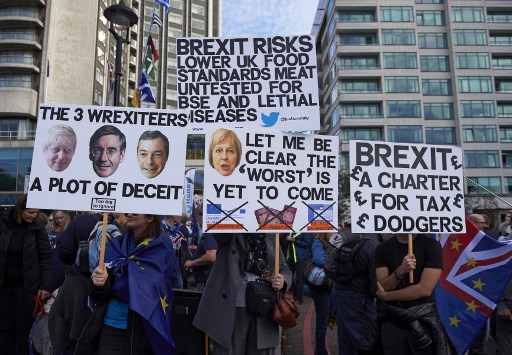 BREXIT RISKS
LOWER UK FOOD
STANDARDS MEAT
UNTESTED FOR
BSE AND LETHAL
DISEASES
THE 3 WREXITEERS
A PLOT OF DECEIT
Too big
to ignore
LET ME BE
CLEAR THE
'WORST' IS
YET TO COME
BREXIT
A CHARTER
£ FOR TAX £
£ DODGERS £